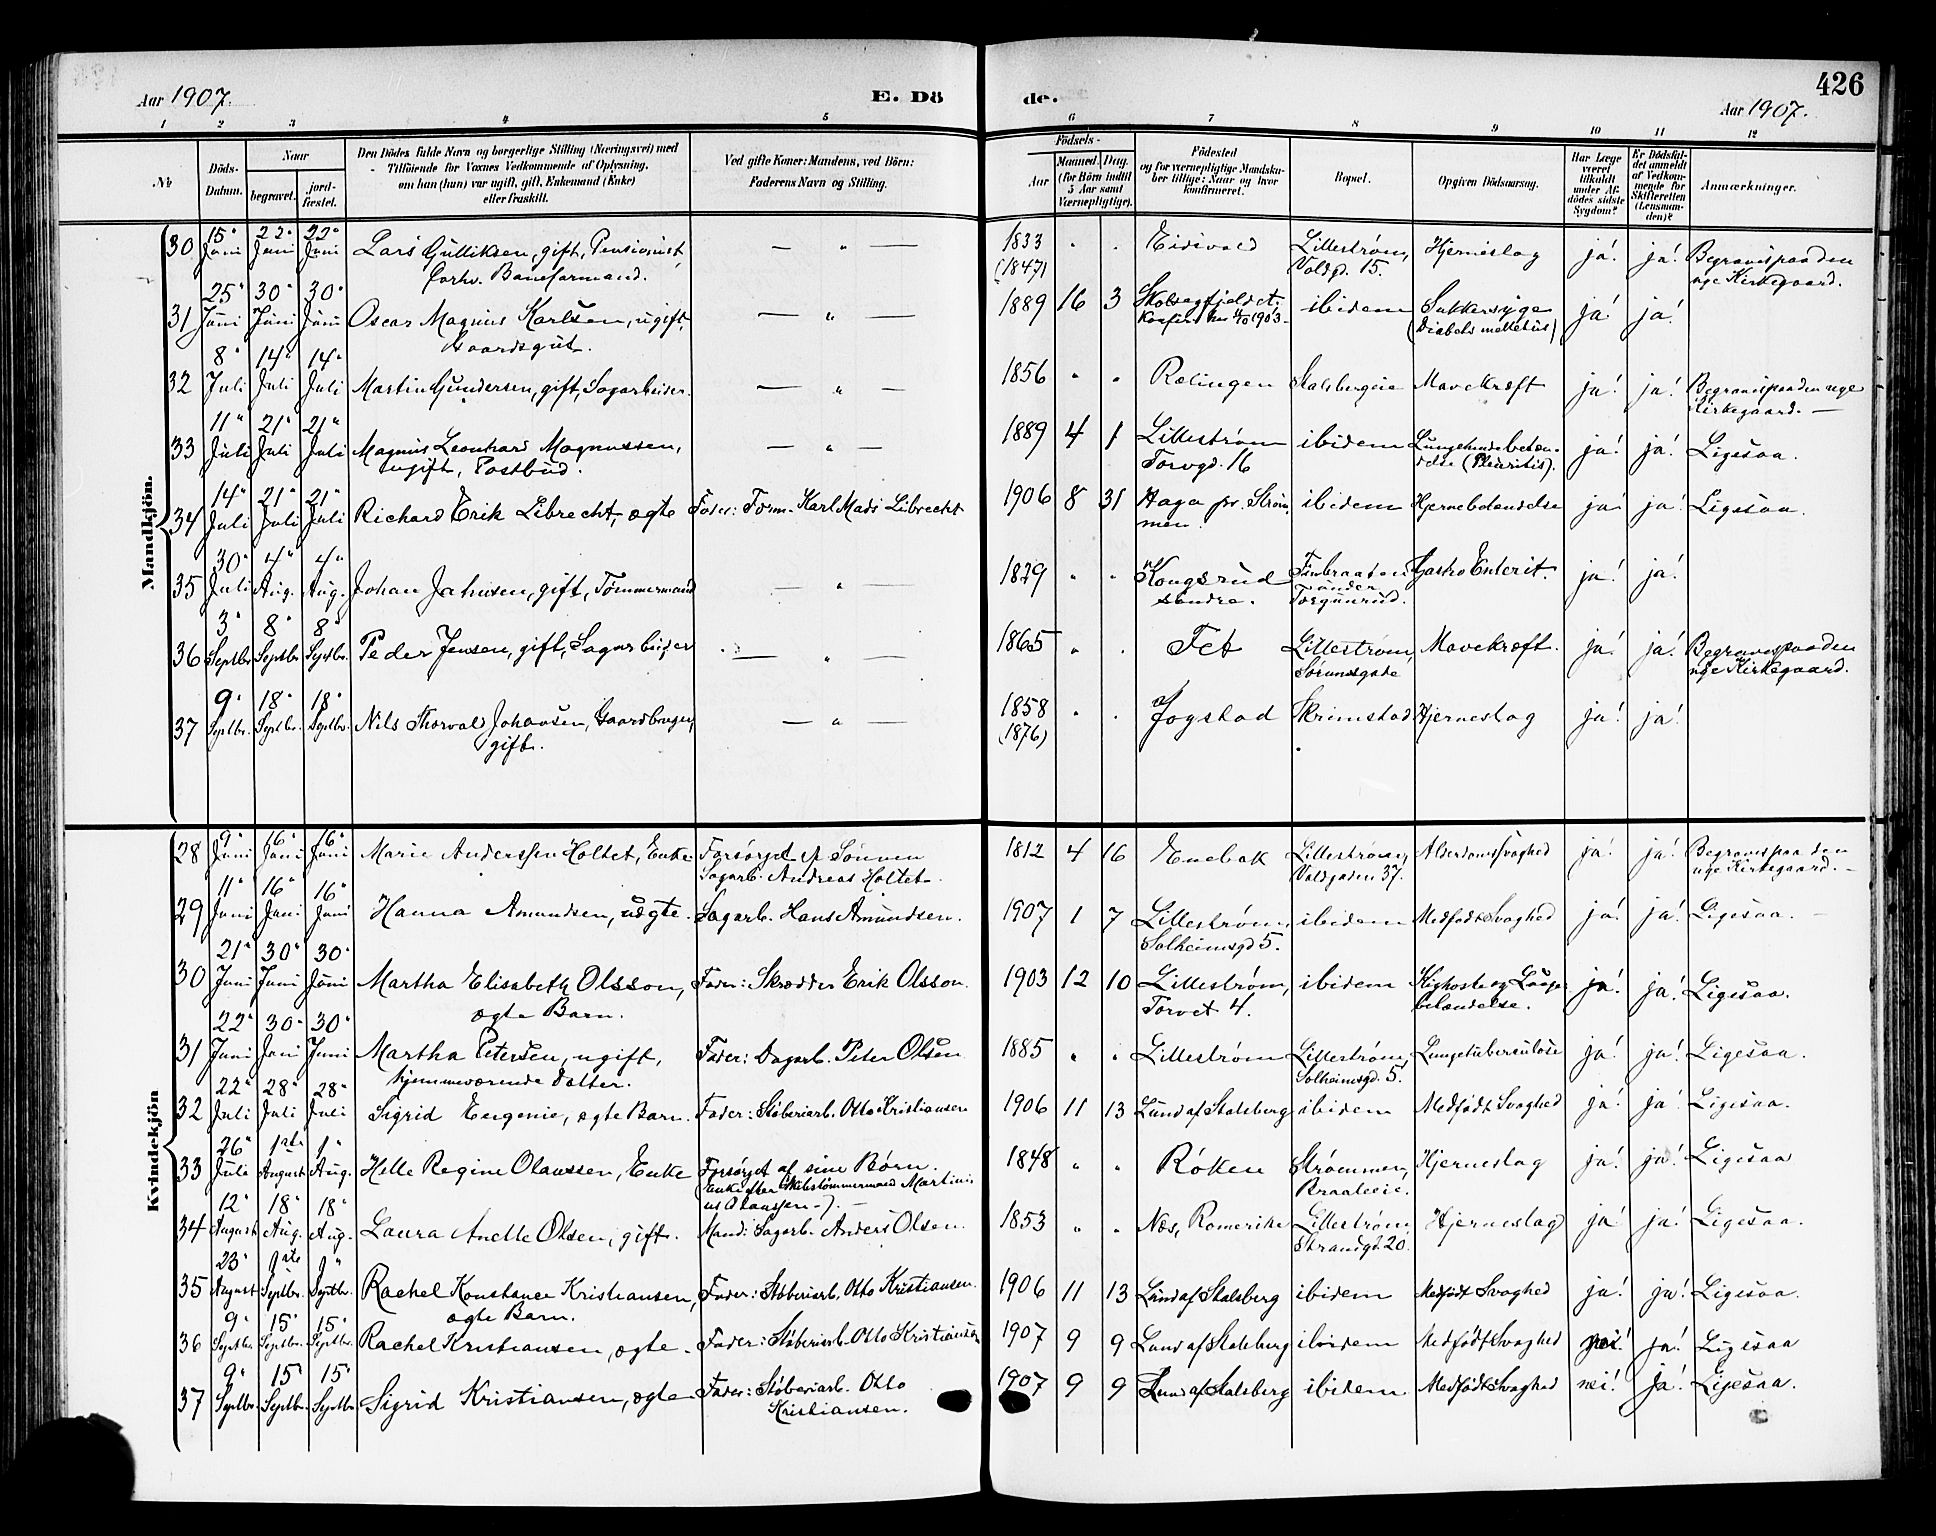 426
Aar 1907. E. Dö de. Aar 1907.
1 2 3 4 5 6 7 8 9 10 11 12
No Döds-Datum. Naar begravet. jord-fæstet. Den Dödes fulde Navn og borgerlige Stilling (Næringsvei) med Tilföiende for Voxnes Vedkommende af Oplysning, om han (hun) var ugift, gift, Enkemand (Enke) eller fraskilt. Ved gifte Koner: Mandens, ved Börn: Faderens Navn og Stilling. Födsels- Aar Maaned. Dag. (for Börn indtil 5 Aar samt Værnepligtige). Födested og for værnepligtige Mandskaber tillige: Naar og hvor konfirmeret. Bopæl. Opgiven Dödsaarsag. Har Læge været tilkaldt under Afdödes sidste Sygdom? Er Dödsfaldet anmeldt af Vedkommende for Skifteretten (Lensmanden)? Anmærkninger.
Mandkjön.
30 15" Juni 22" Juni 22" Juni Lars Gulliksen, gift, Pensionist, forhv. Baneformand. — " — 1833 (1847) " " Eidsvold Lillestrøm, Voldgd. 15. Hjerneslag ja! ja! Begravet paa den nye Kirkegaard.
31 25" Juni 30" Juni 30" Juni Oscar Magnus Karlsen, ugift, Gaardsgut. — " — 1889 16 3 Skolsegfjeldet. 1903. ibidem Sukkersyge (Diabets melletus) ja! ja!
32 8" Juli 14" Juli 14" Juli Martin Gundersen, gift, Sagarbeider. — " — 1856 " " Rælingen Stalsbergeie Mavekræft ja! ja! Begravet paa den nye Kirkegaard. —
33 11" Juli 21" Juli 21" Juli Magnus Leonhard Magnussen, ugift, Postbud. — " — 1889 4 1 Lillestrøm Torvgd. 16 ibidem Lungehindebetændelse (Pleuritis). ja! ja! Ligesaa.
34 14" Juli 21" Juli 21" Juli Richard Erik Librecht, ægte Fader: Form. Karl Mads Librecht 1906 8 31 Haga pr. Strømmen. ibidem Hjernebetændelse ja! ja! Ligesaa.
35 30" Juli 4" Aug. 4" Aug. Johan Jahnsen, gift, Tømmermand — " — 1829 " " Kongsrud søndre. Finbraaten under Torgunrud. Gastro Enterit. ja! ja!
36 3" Septbr. 8" Septbr. 8" Septbr. Peder Jensen, gift, Sagarbeider — " — 1865 " " Fet Lillestrøm, Sørumsgade Mavekræft. ja! ja! Begravet paa den nye Kirkegaard.
37 9" Septbr. 18" Septbr. 18" Septbr. Nils Thorvald Johansen, Gaardbruger, gift. — " — 1858 (1876) " " Jogstad Skrimstad Hjerneslag ja! ja!
Kvindekjön
28 9" Juni 16" Juni 16" Juni Marie Anderssen Holtet, Enke Forsørget af Sønnen Sagarb. Andreas Holtet. 1812 4 16 Enebak Lillestrøm, Voldgaden 37. Alderdomssvaghed ja! ja! Begravet paa den nye Kirkegaard. —
29 11" Juni 16" Juni 16" Juni Hanna Amundsen, uægte. Sagarb. Hans Amundsen. 1907 1 7 Lillestrøm, Solheimsgd 5. ibidem Medfødt Svaghed ja! ja! Ligesaa. —
30 21" Juni 30" Juni 30" Juni Martha Elisabeth Olsson, ægte Barn. Fader: Skrædder Erik Olsson. 1903 12 10 Lillestrøm, Torvet 4. ibidem Kighoste og Lungebetændelse. ja! ja! Ligesaa.
31 22" Juni 30" Juni 30" Juni Martha Petersen, ugift, hjemmeværende Datter. Fader: Dagarb. Peter Olsen 1885 " " Lillestrøm Lillestrøm, Solheimsgd. 5. Lungetuberculose ja! ja! Ligesaa.
32 22" Juli 28" Juli 28" Juli Sigrid Eugenie, ægte Barn. Fader: Støberiarb. Otto Kristiansen 1906 11 13 Lund af Stalsberg ibidem Medfødt Svaghed ja! ja! Ligesaa.
33 26" Juli 1ste August 1" Aug. Helle Regine Olaussen, Enke Forsørget af sine Børn. (Enke efter Skibstømmermand Martinius Olaussen.) — 1848 " " Røken Strømmen, Braateeie. Hjerneslag ja! ja! Ligesaa
34 12" August 18" Aug. 18" Aug. Laura Anette Olsen, gift. Mand: Sagarb. Anders Olsen. 1853 " " Næs, Romerike Lillestrøm, Strandgd. 20. Hjerneslag ja! ja! Ligesaa.
35 23" August 1ste Septbr. 1" Septbr. Rachel Konstance Kristiansen, ægte Barn. Fader: Støberiarb. Otto Kristiansen. 1906 11 13 Lund af Stalsberg ibidem Medfødt Svaghed ja! ja! Ligesaa.
36 9" Septbr. 15" Septbr. 15" Septbr. Rachel Kristiansen, ægte. Fader: Støberiarb. Otto Kristiansen 1907 9 9 Lund af Stalsberg ibidem Medfødt Svaghed nei! ja! Ligesaa
37 9" Septbr. 15" Septbr. 15" Septbr. Sigrid Kristiansen, ægte Fader: Støberiarb. Otto Kristiansen. 1907 9 9 Lund af Stalsberg ibidem Medfødt Svaghed nei! ja! Ligesaa.